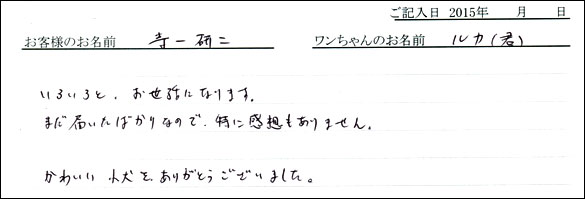 ご記入日 2015年 月 日
お客様のお名前 寺一研二 ワンちゃんのお名前 ルカ(君)
いろいろと、お世話になります。
まだ届いたばかりなので、特に感想もありません。
かわいい小犬を、ありがとうございました。